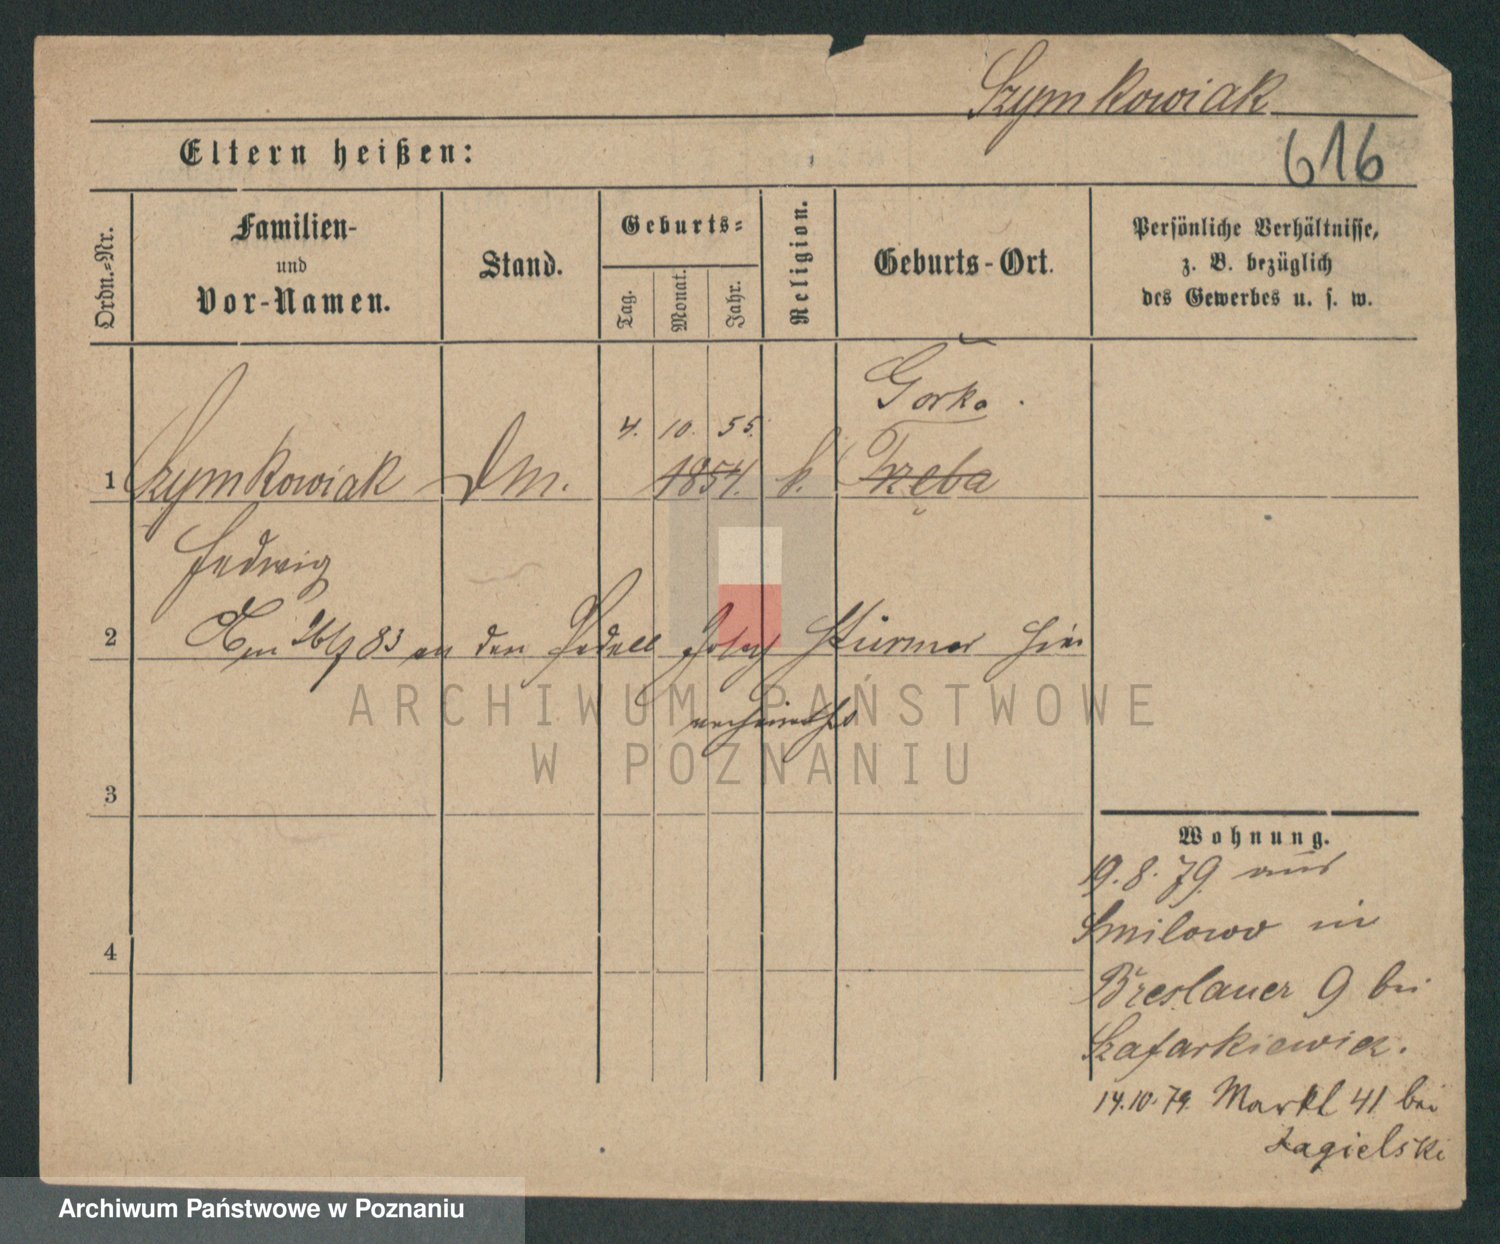 Szymkowiak
Eltern heißen:
616
Ordn.-Nr.
Familien-
und
Vor-Namen.
Stand.
Geburts-
Tag.
Monat.
Jahr.
Religion.
Geburts-Ort.
Persönliche Verhältnisse,
z. B. bezüglich
des Gewerbes u. s. w.
Gorka.
4. 10. 55.
1 Szymkowiak DM. 1854. k. Trzeba
Hedwig
2 Am 26/9 83 an den Pedell Josef Stürmer hier
verheirathet
ARCHIWUM PAŃSTWOWE
W POZNANIU
3
Wohnung.
19.8.79. aus
Smilowo in
Breslauer 9 bei
Szafarkiewicz.
4
14.10.79. Markt 41 bei
Jagielski
Archiwum Państwowe w Poznaniu